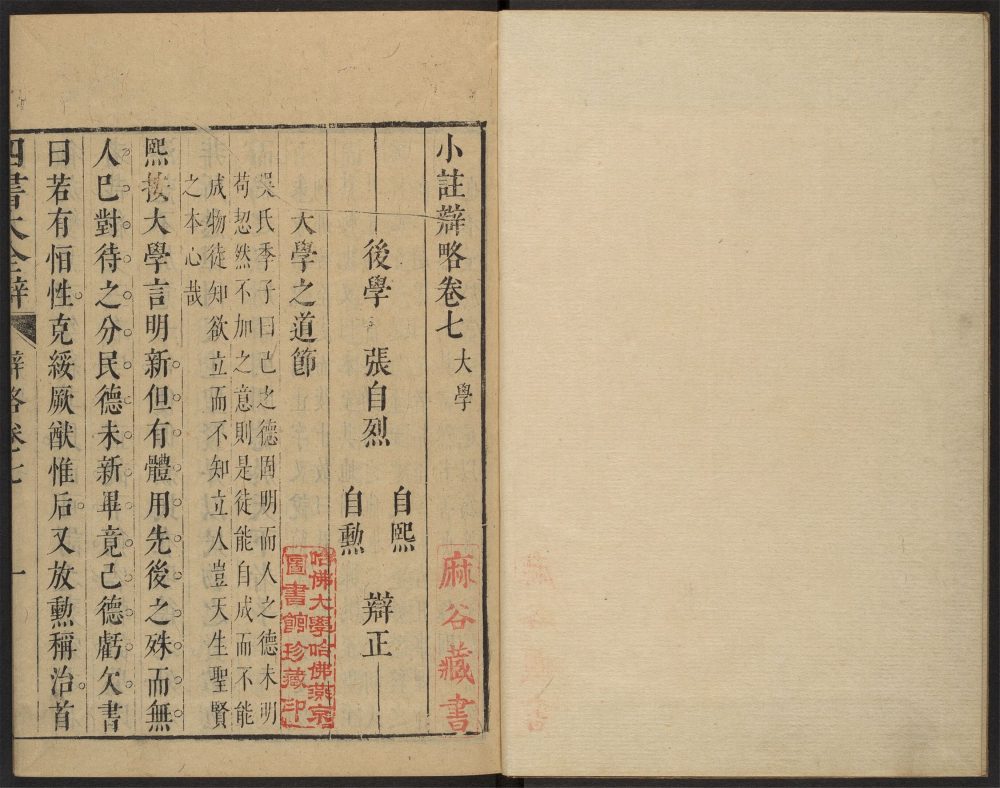 小註辯略卷七 大學
後學 張自烈 自熙 自勲 辯正
大學之道節
吳氏季子曰己之德固明而人之德未明
苟恝然不加之意則是徒能自成而不能
成物徒知欲立而不知立人豈天生聖賢
之本心哉
熙按大學言明新但有體用先後之殊而無
人巳對待之分民德未新畢竟己德虧欠書
曰若有恒性克綏厥猷惟后又放勲稱治首
四書大全辯 辯略卷七 一
麻谷藏書
哈佛大學哈佛燕京
圖書館珍藏印